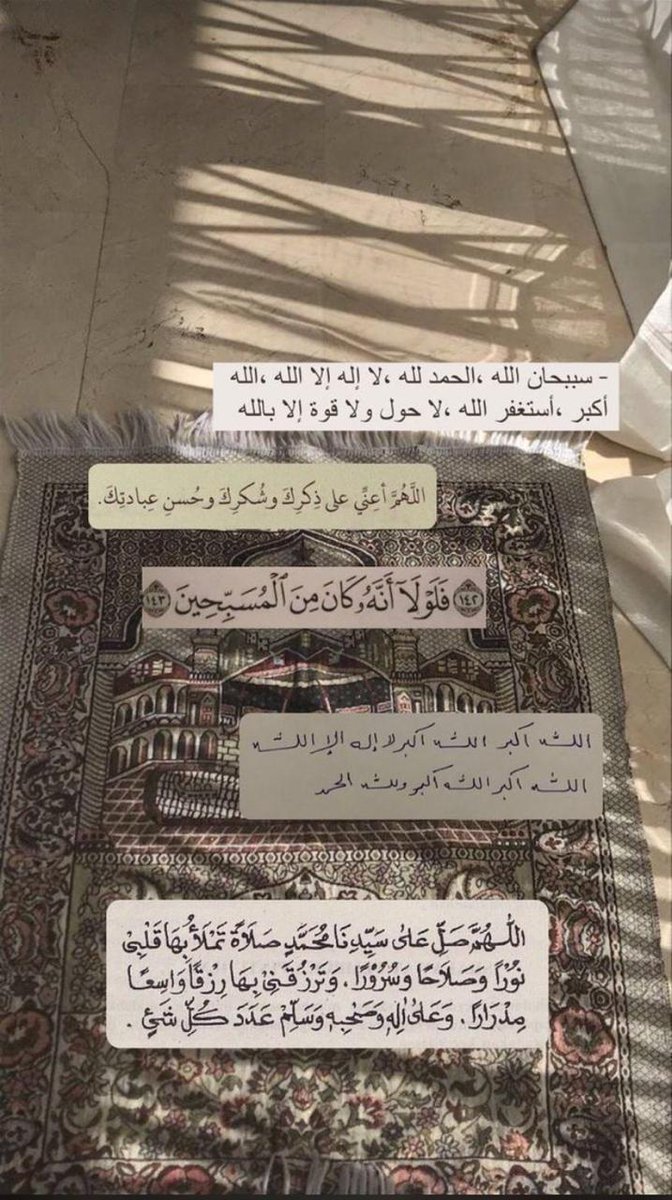 - سببحان الله ،الحمد لله ،لا إله إلا الله ،الله
أكبر ،أستغفر الله ،لا حول ولا قوة إلا بالله
اللَّهُمَّ أعِنِّي على ذِكرِكَ وشُكرِكَ وحُسنِ عِبادتِكَ.
﴿١٤٢﴾ فَلَوْلَآ أَنَّهُۥ كَانَ مِنَ ٱلْمُسَبِّحِينَ ﴿١٤٣﴾
الله أكبر الله أكبر لا إله إلا الله
الله أكبر الله أكبر ولله الحمد
اللَّهُمَّ صَلِّ عَلَى سَيِّدِنَا مُحَمَّدٍ صَلَاةً تَمْلَأُ بِهَا قَلْبِي
نُورًا وَصَلَاحًا وَسُرُورًا. وَتَرْزُقَنِي بِهَا رِزْقًا وَاسِعًا
مِدْرَارًا. وَعَلَى اٰلِهِ وَصَحْبِهِ وَسَلِّمْ عَدَدَ كُلِّ شَيْءٍ.